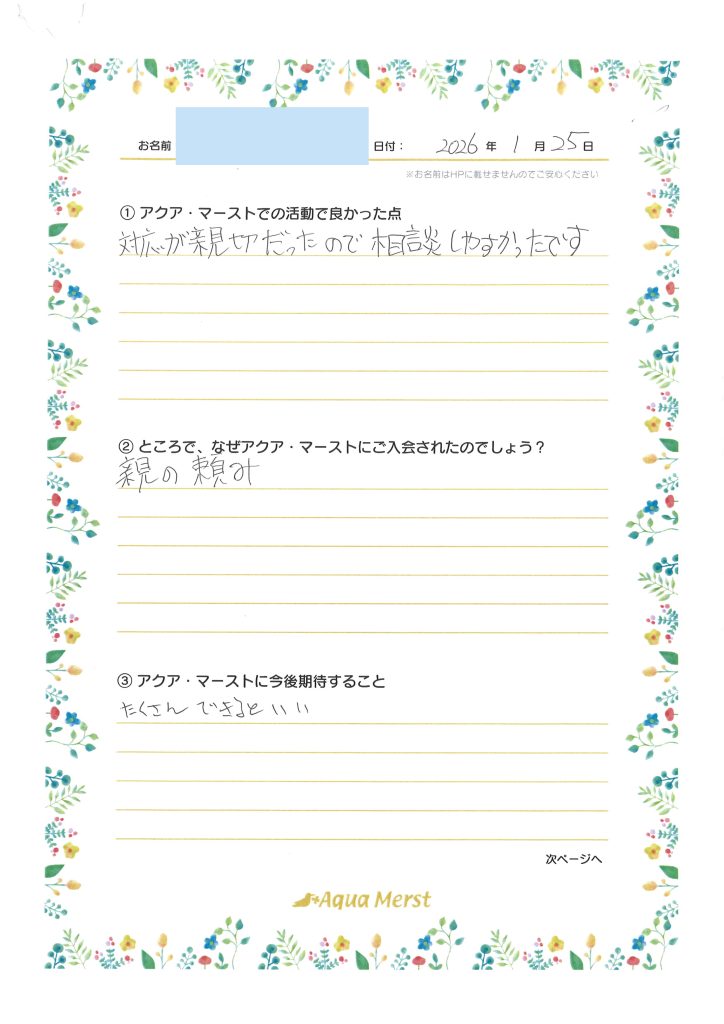 お名前 日付： 2026 年 1 月 25 日
※お名前はHPに載せませんのでご安心ください
① アクア・マーストでの活動で良かった点
対応が親切だったので相談しやすかったです
② ところで、なぜアクア・マーストにご入会されたのでしょう？
親の頼み
③ アクア・マーストに今後期待すること
たくさんできるといい
次ページへ
Aqua Merst